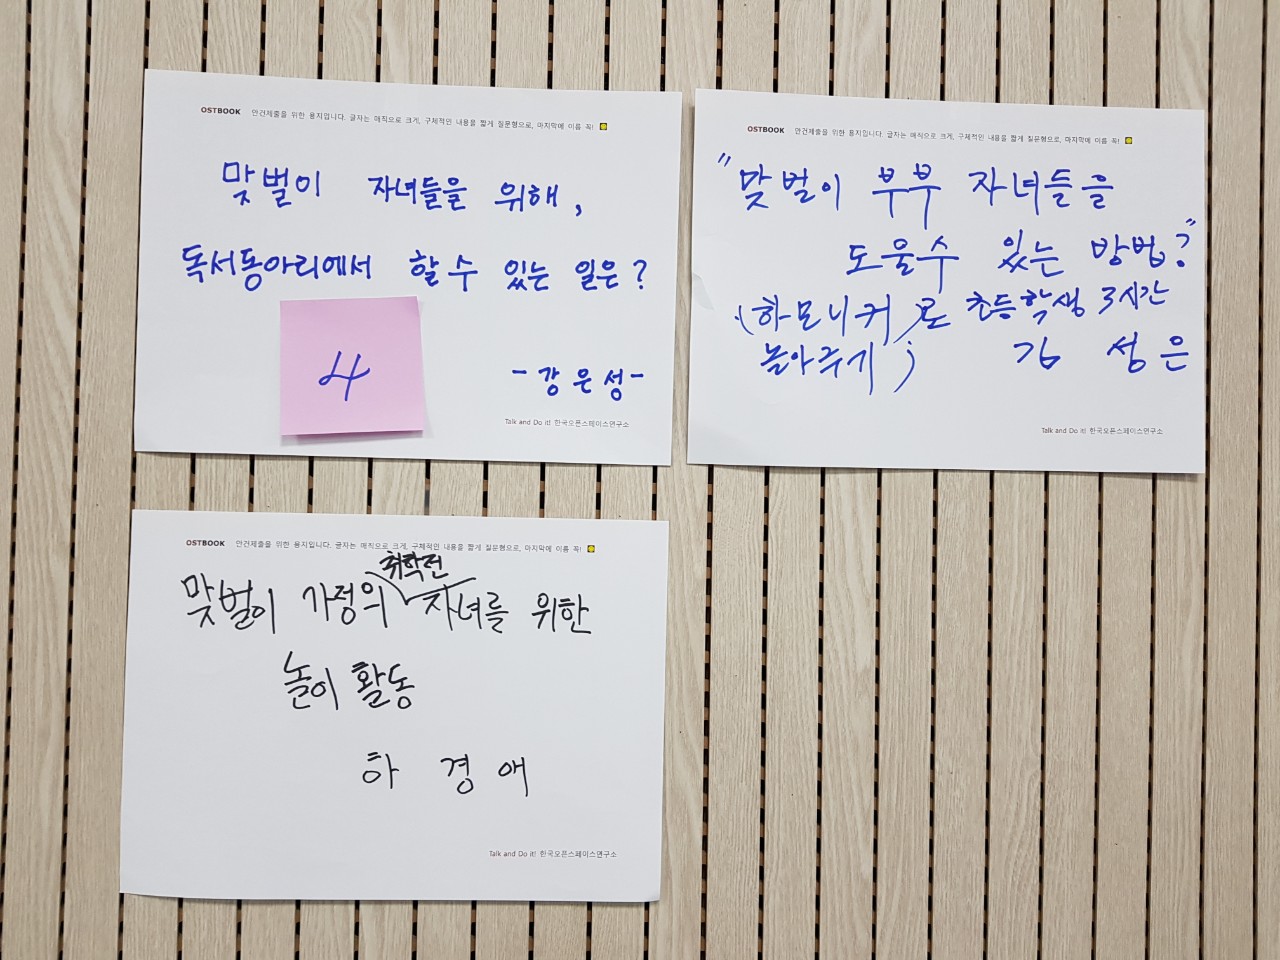 OSTBOOK 안건제출을 위한 용지입니다. 글자는 매직으로 크게, 구체적인 내용을 짧게 질문형으로, 마지막에 이름 꼭!
맞벌이 자녀들을 위해,
독서동아리에서 할 수 있는 일은?
4
-강은성-
Talk and Do it! 한국오픈스페이스연구소
OSTBOOK 안건제출을 위한 용지입니다. 글자는 매직으로 크게, 구체적인 내용을 짧게 질문형으로, 마지막에 이름 꼭!
"맞벌이 부부 자녀들을
도울수 있는 방법?"
(하모니커)로 초등학생 3시간
놀아주기; 김성은
Talk and Do it! 한국오픈스페이스연구소
OSTBOOK 안건제출을 위한 용지입니다. 글자는 매직으로 크게, 구체적인 내용을 짧게 질문형으로, 마지막에 이름 꼭!
맞벌이 가정의 취학전 자녀를 위한
놀이 활동
하 경 애
Talk and Do it! 한국오픈스페이스연구소